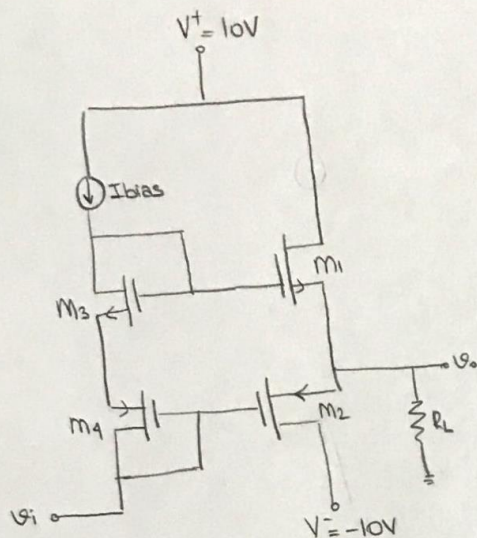 V⁺= 10V
Ibias
M1
M3
M4
M2
vo
RL
vi
V⁻= -10V